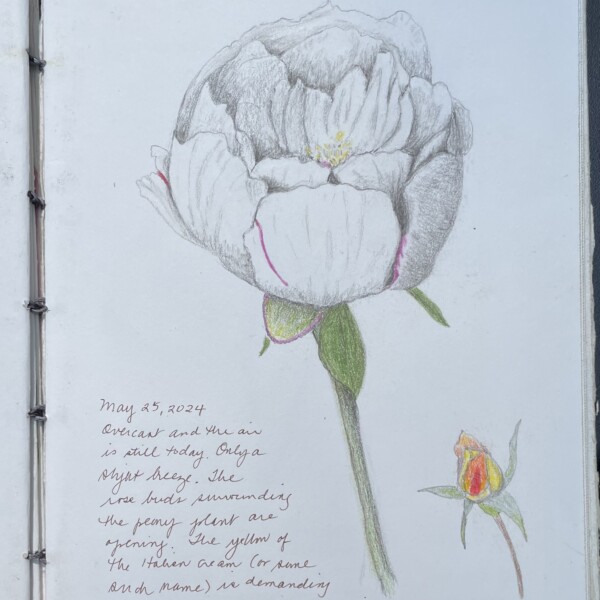 May 25, 2024
Overcast and the air
is still today. Only a
slight breeze. The
rose buds surrounding
the peony plant are
opening. The yellow of
the Italian cream (or some
such name) is demanding